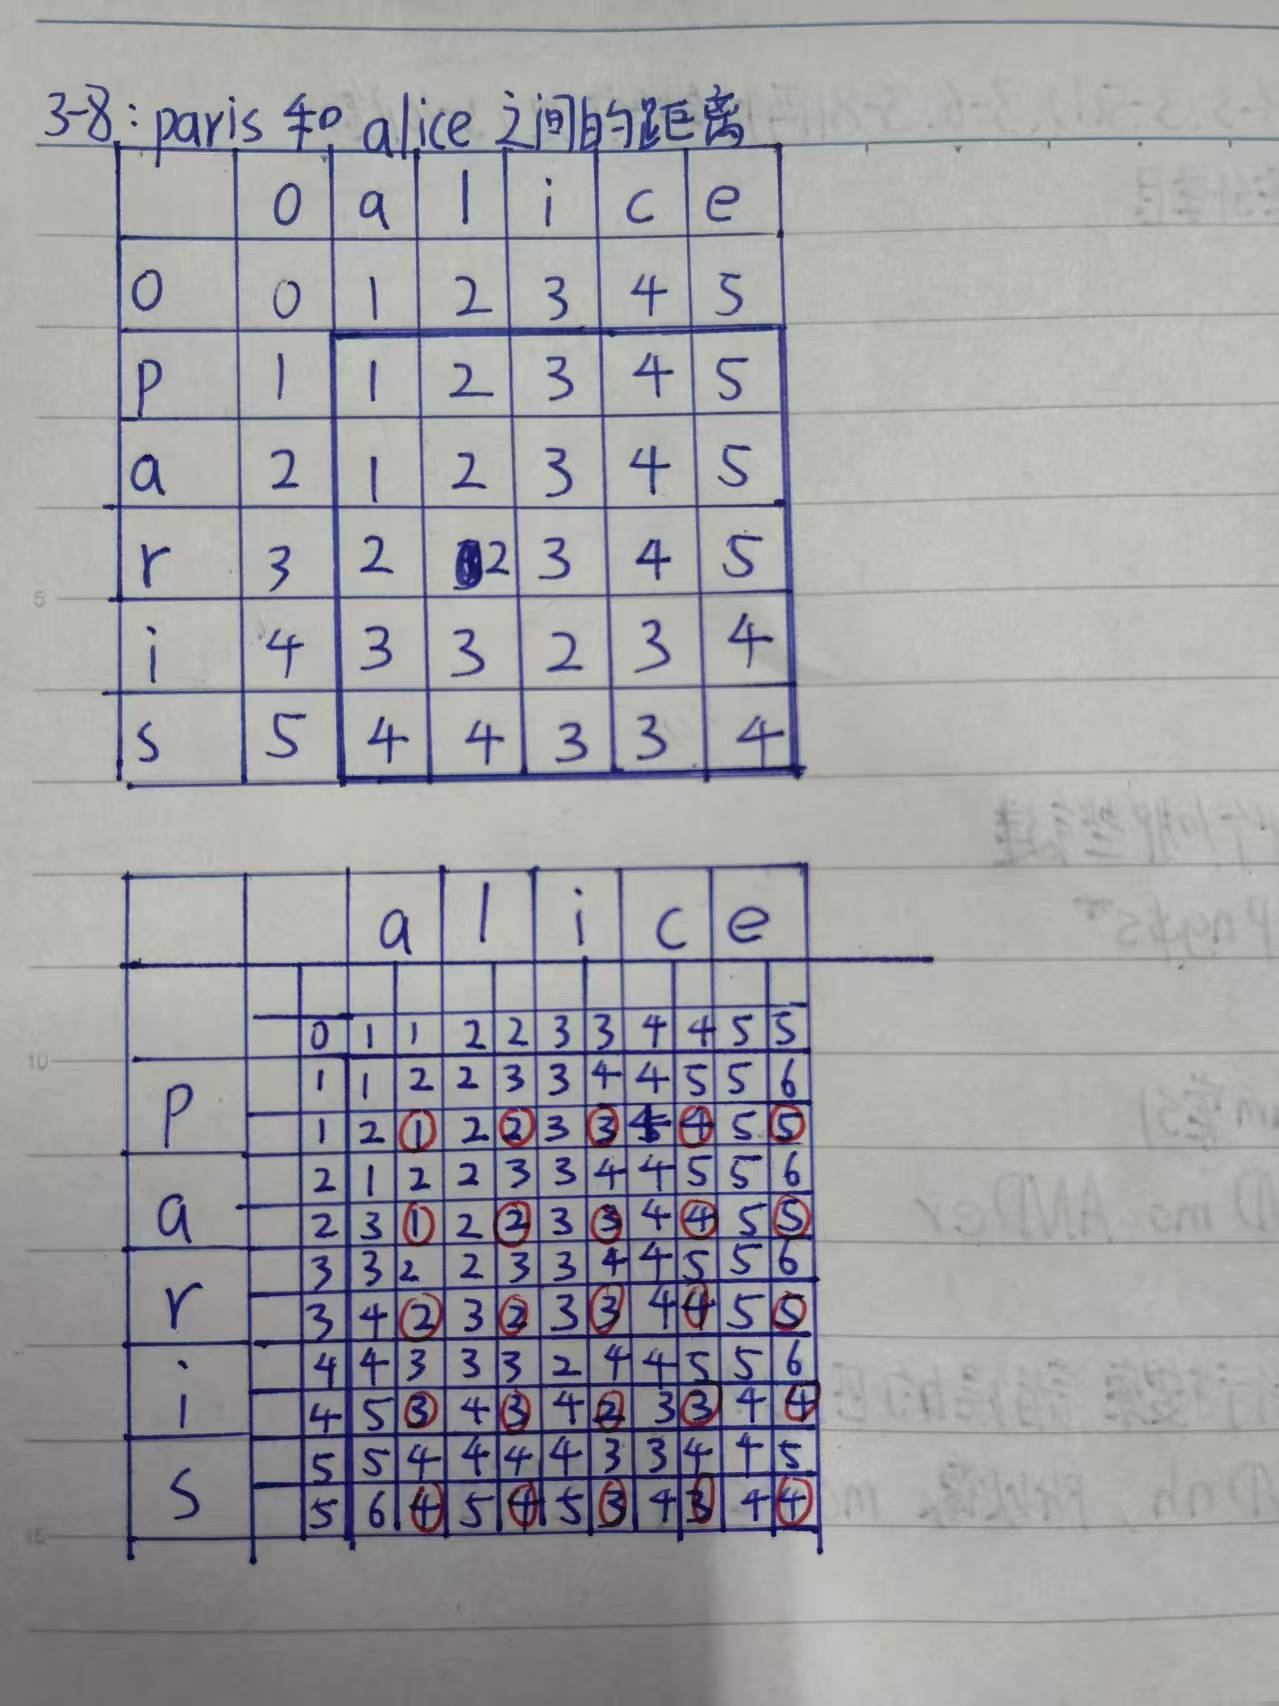 3-8: paris 和 alice 之间的距离
0 a l i c e
0 0 1 2 3 4 5
p 1 1 2 3 4 5
a 2 1 2 3 4 5
r 3 2 2 3 4 5
i 4 3 3 2 3 4
s 5 4 4 3 3 4
a l i c e
0 1 1 2 2 3 3 4 4 5 5
P 1 1 2 2 3 3 4 4 5 5 6
1 2 1 2 2 3 3 4 4 5 5
a 2 1 2 2 3 3 4 4 5 5 6
2 3 1 2 2 3 3 4 4 5 5
r 3 3 2 2 3 3 4 4 5 5 6
3 4 2 3 2 3 3 4 4 5 5
i 4 4 3 3 3 2 4 4 5 5 6
4 5 3 4 3 4 2 3 3 4 4
s 5 5 4 4 4 4 3 3 4 4 5
5 6 4 5 4 5 3 4 3 4 4
5
10
15